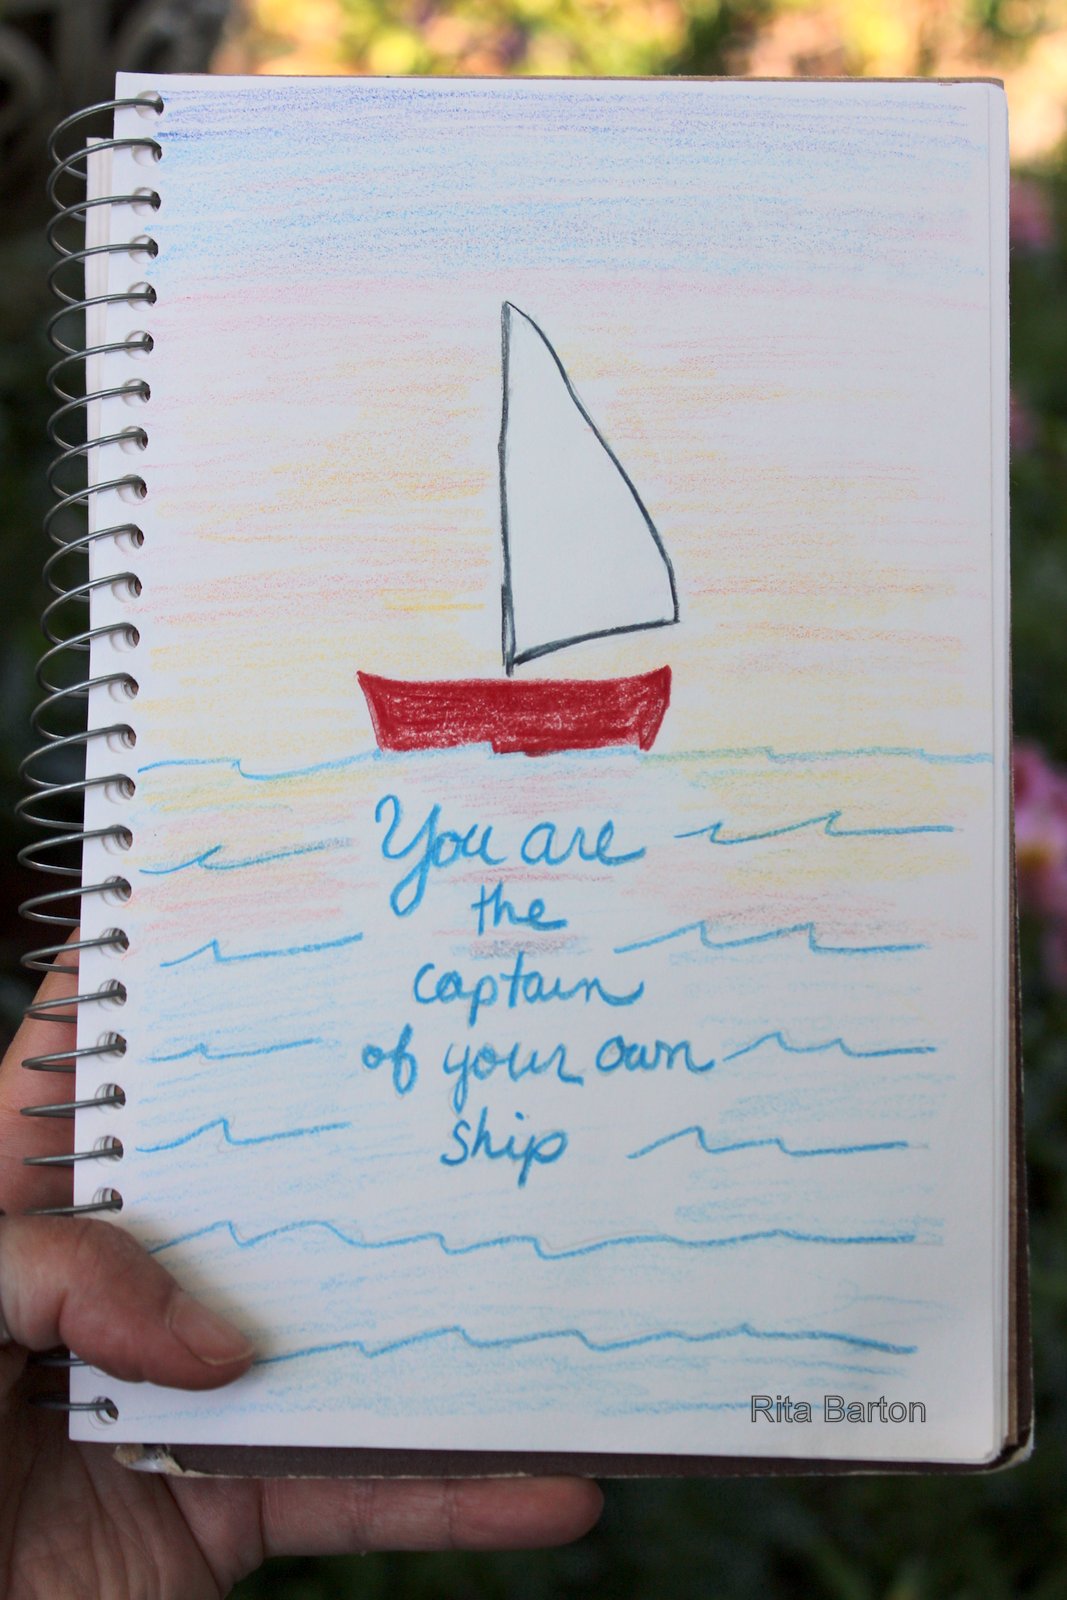 You are
the
captain
of your own
ship
Rita Barton